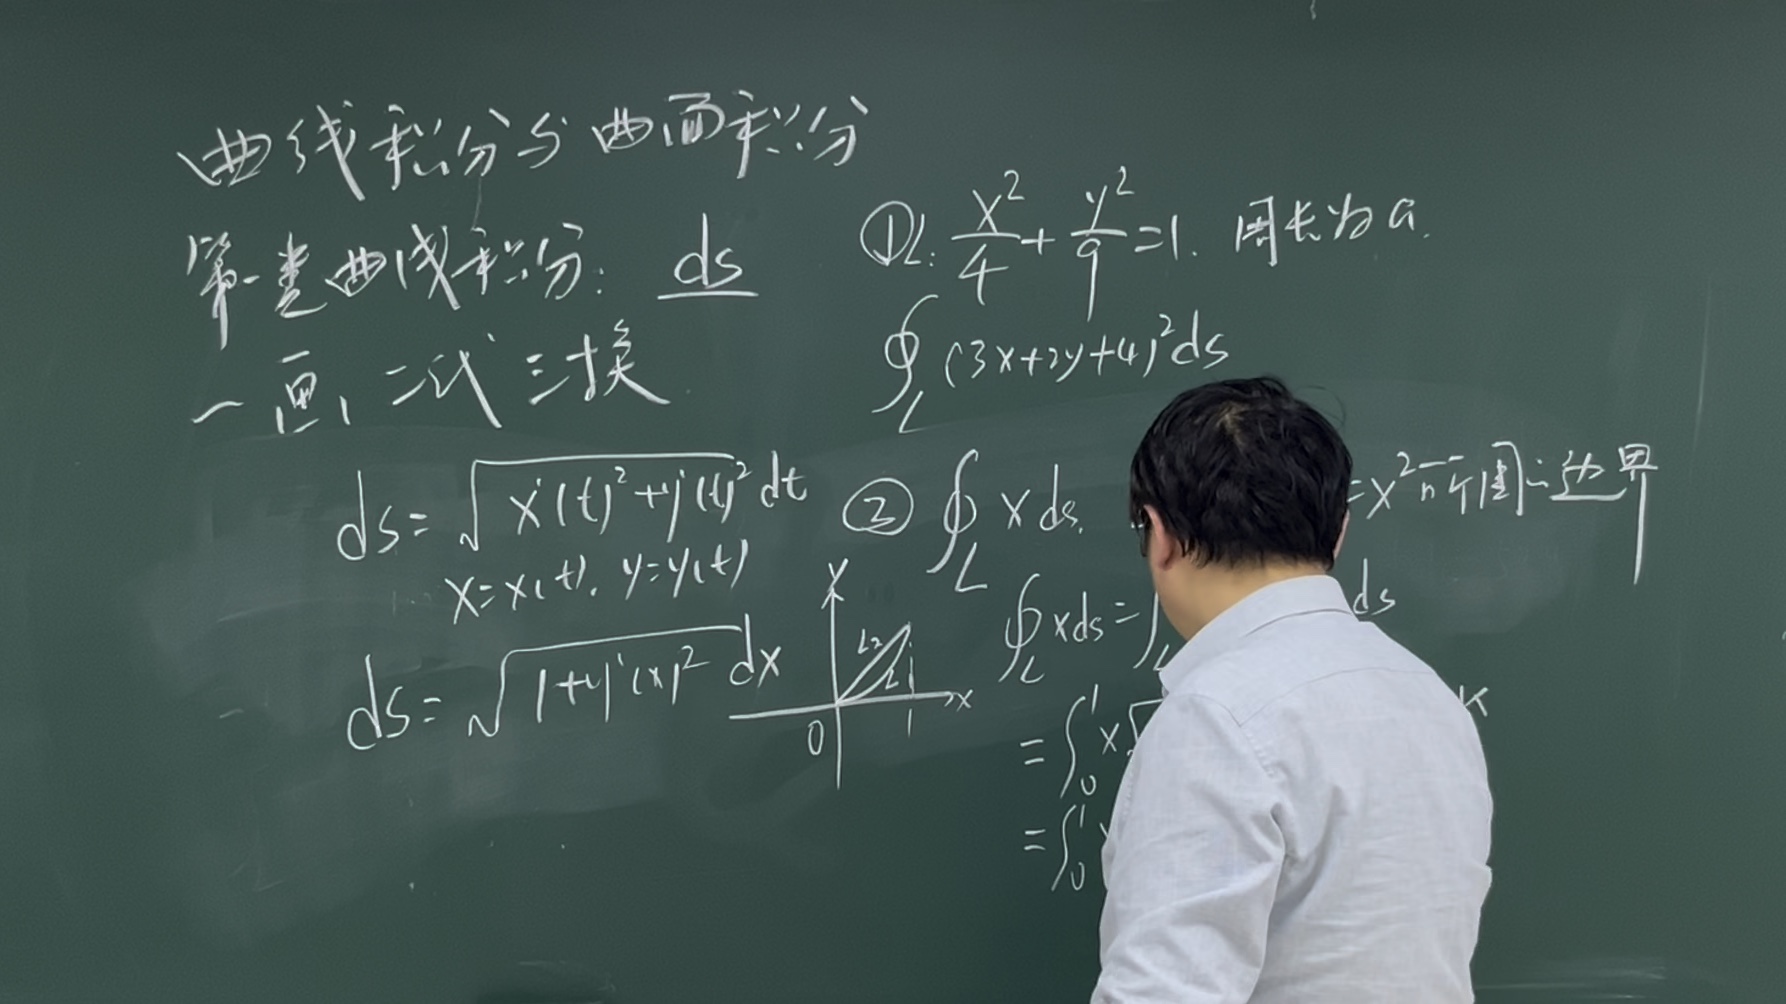 曲线积分与曲面积分
第一类曲线积分: ds
一画, 二代 三换
ds=√(x'(t)²+y'(t)²) dt
x=x(t), y=y(t)
ds=√(1+y'(x)²) dx
y
L2
L1
0 1 x
① L: x²/4 + y²/9 =1. 周长为a.
∮_L (3x+2y+4)² ds
② ∮_L x ds, =x² 所围 边界
∮_L x ds = ∫_L ds
= ∫₀¹ x√ x
= ∫₀¹